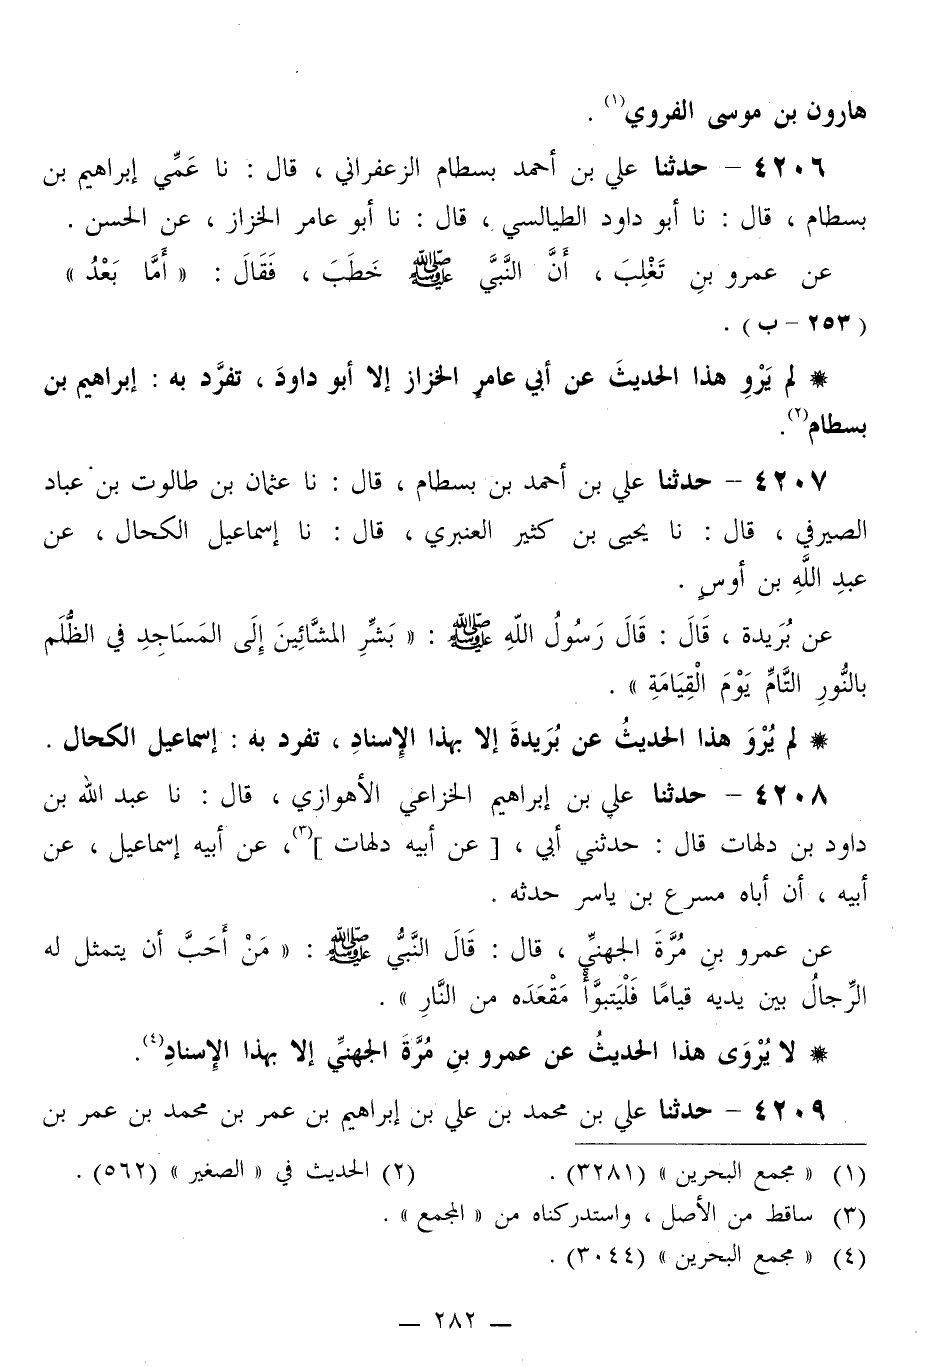 هارون بن موسى الفروي(١) .
٤٢٠٦ – حدثنا علي بن أحمد بسطام الزعفراني ، قال : نا عَمِّي إبراهيم بن
بسطام ، قال : نا أبو داود الطيالسي ، قال : نا أبو عامر الخزاز ، عن الحسن .
عن عمرو بنِ تَغْلِبَ ، أَنَّ النَّبيَّ ﷺ خَطَبَ ، فَقَالَ : « أَمَّا بَعْدُ »
( ٢٥٣ – ب ) .
* لم يَرْوِ هذا الحديثَ عن أبي عامرٍ الخزاز إلا أبو داودَ ، تفرَّد به : إبراهيم بن
بسطام(٢).
٤٢٠٧ – حدثنا علي بن أحمد بن بسطام ، قال : نا عثمان بن طالوت بن عباد
الصيرفي ، قال : نا يحيى بن كثير العنبري ، قال : نا إسماعيل الكحال ، عن
عبدِ اللَّهِ بن أوسٍ .
عن بُرَيدة ، قَالَ : قَالَ رَسُولُ اللّهِ ﷺ : « بَشِّرِ المشَّائِينَ إِلَى المَسَاجِدِ في الظُّلَم
بالنُّورِ التَّامِّ يَوْمَ الْقِيَامَةِ » .
* لم يُرْوَ هذا الحديثُ عن بُرَيدةَ إلا بهذا الإِسنادِ ، تفرد به : إسماعيل الكحال .
٤٢٠٨ – حدثنا علي بن إبراهيم الخزاعي الأهوازي ، قال : نا عبد الله بن
داود بن دلهات قال : حدثني أبي ، [ عن أبيه دلهات ](٣)، عن أبيه إسماعيل ، عن
أبيه ، أن أباه مسرع بن ياسر حدثه .
عن عمرو بنِ مُرَّةَ الجهنيِّ ، قال : قَالَ النَّبيُّ ﷺ : « مَنْ أَحَبَّ أن يتمثل له
الرِّجالُ بين يديه قيامًا فَلْيَتبوَّأْ مَقْعَدَه من النَّارِ » .
* لا يُرْوَى هذا الحديثُ عن عمرو بنِ مُرَّةَ الجهنيِّ إلا بهذا الإِسنادِ(٤).
٤٢٠٩ – حدثنا علي بن محمد بن علي بن إبراهيم بن عمر بن محمد بن عمر بن
(١) « مجمع البحرين » (٣٢٨١) . (٢) الحديث في « الصغير » (٥٦٢) .
(٣) ساقط من الأصل ، واستدركناه من « المجمع » .
(٤) « مجمع البحرين » (٣٠٤٤) .
— ٢٨٢ —